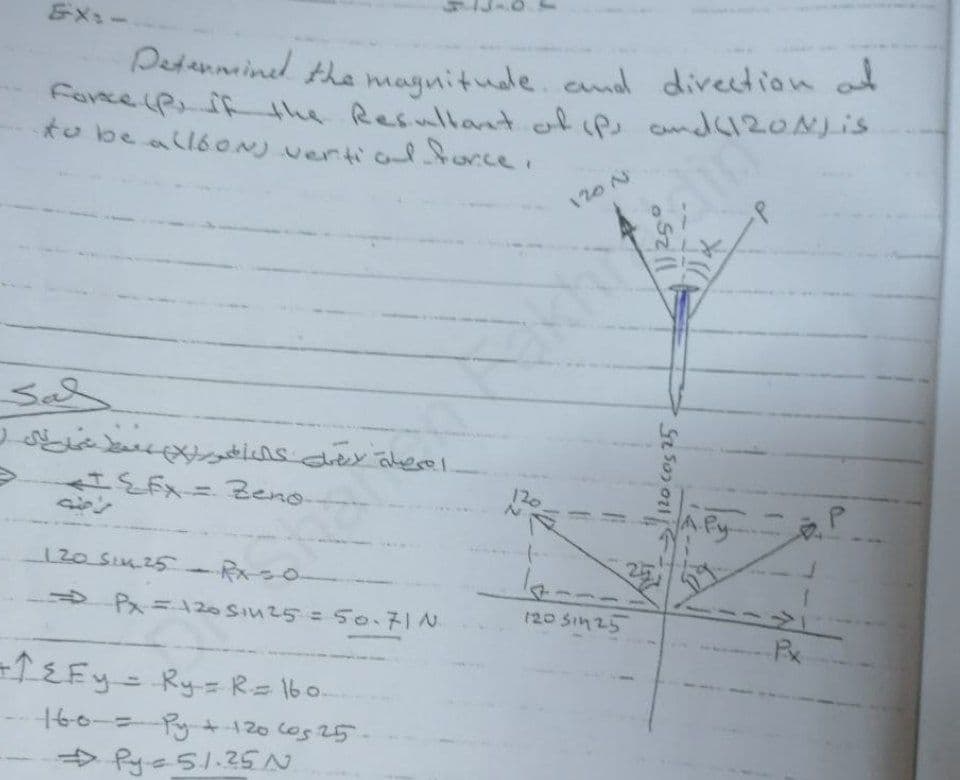 EX:-
Determined the magnitude and direction of
Force (P) if the Resultant of (P) and (120N) is
to be a (160N) vertical force.
120 N
25°
P
Sol
ΣFx = Zero
120 sin 25 - Px = 0
⇒ Px = 120 sin 25 = 50.71 N
+↑ ΣFy = Ry = R = 160
160 = Py + 120 cos 25
⇒ Py = 51.25 N
120 N
120 cos 25
Py
P
25
120 sin 25
Px